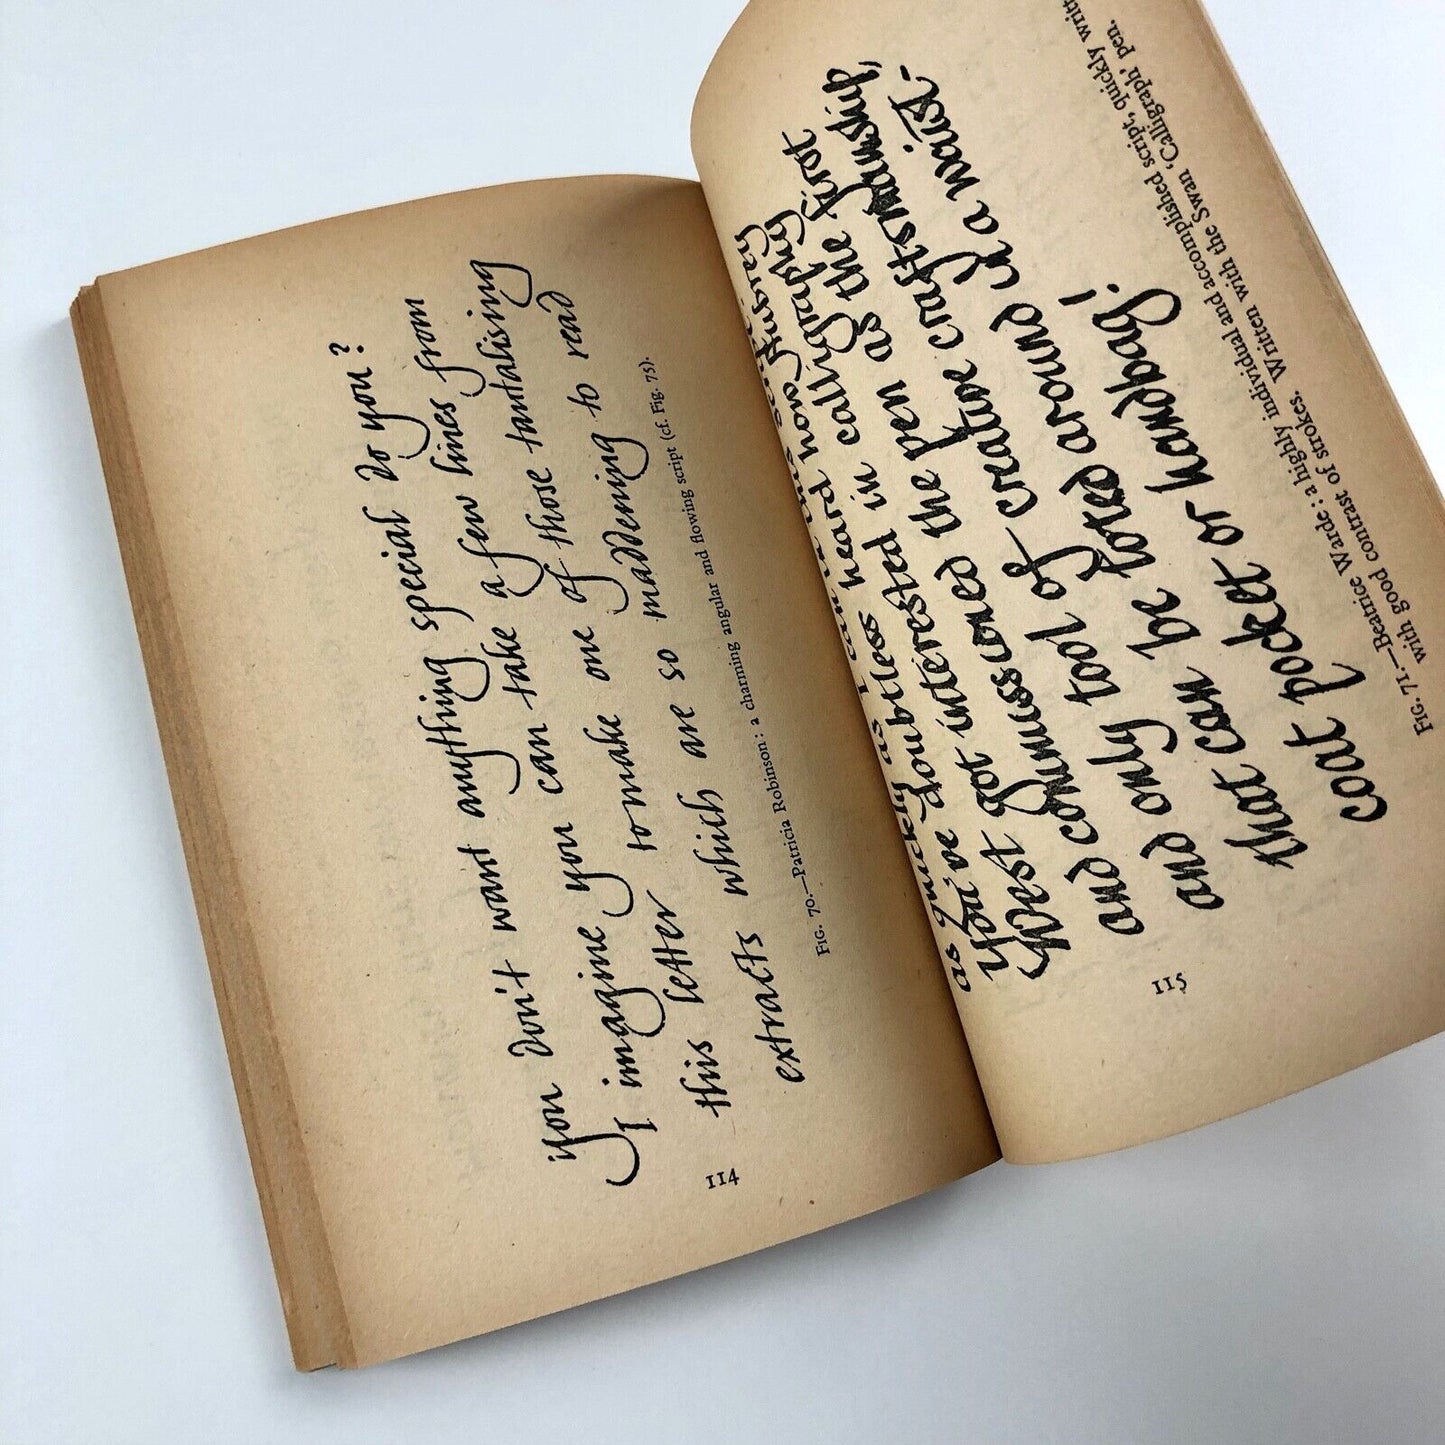 you don't want anything special do you?
I imagine you can take a few lines from
this letter to make one of those tantalising
extracts which are so maddening to read
FIG. 70.—Patricia Robinson: a charming angular and flowing script (cf. Fig. 75).
114
as quickly as I can in this script.
You've doubtless heard how Aubrey
West got interested in calligraphy
and commissioned the pen as the first
and only tool of creative craftsmanship,
that can be toted around in a waist-
coat pocket or handbag!
FIG. 71.—Beatrice Warde: a highly individual and accomplished script, quickly
with good contrast of strokes. Written with the Swan 'Calligraph' pen.
115